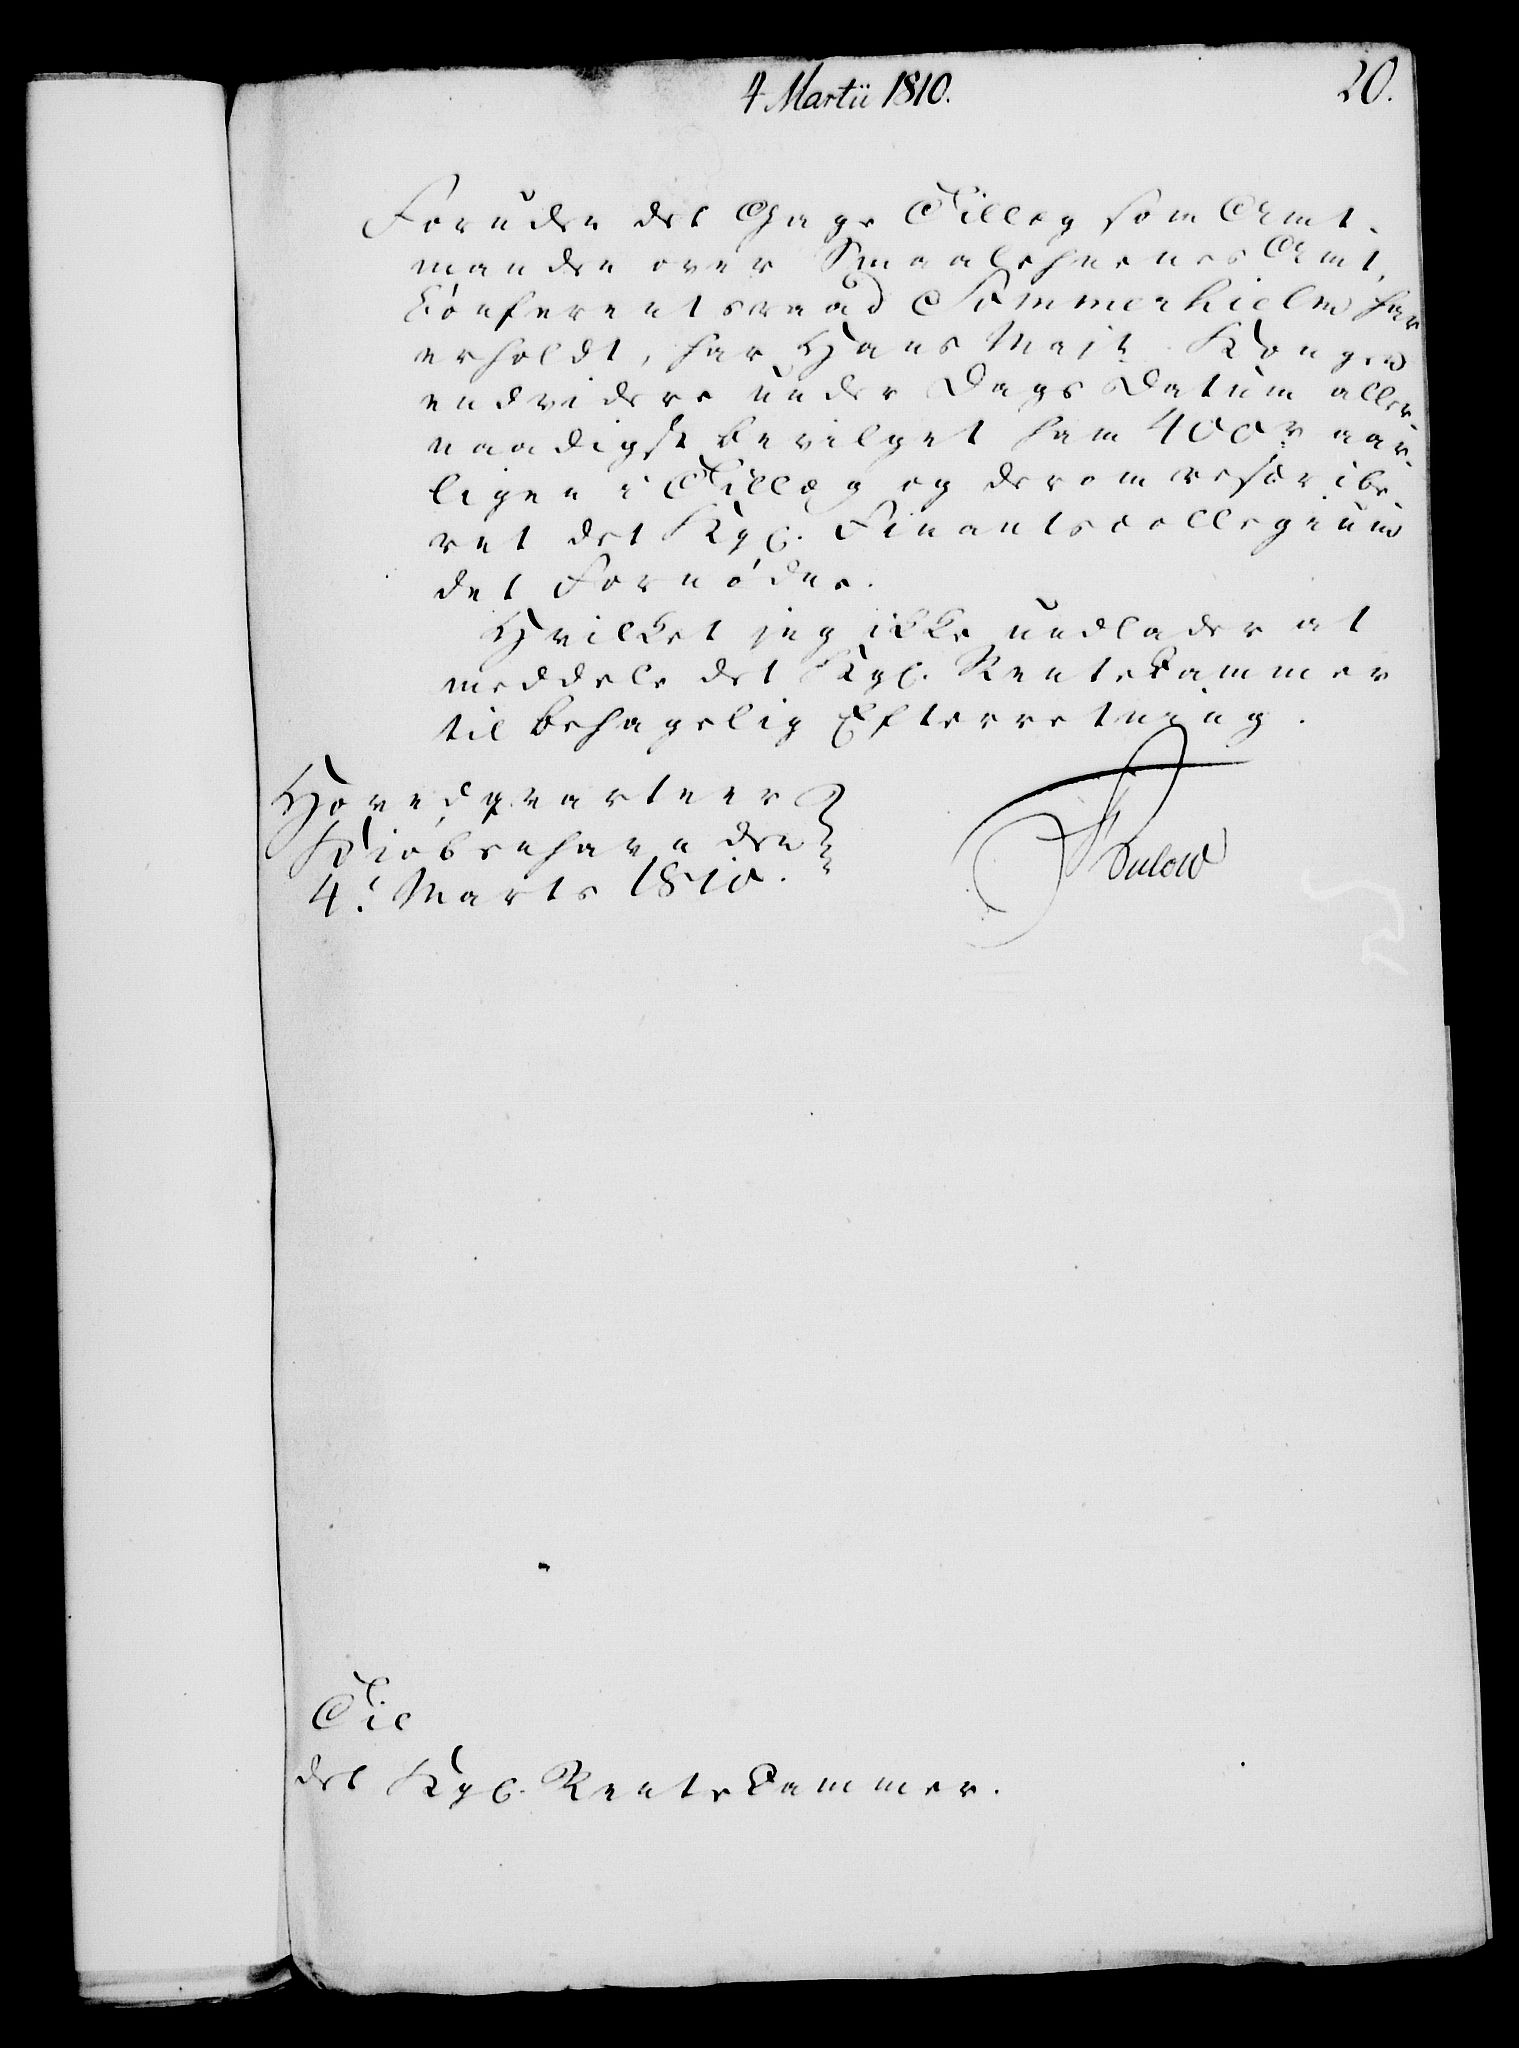 4 Martii 1810.
20.
Foruden det Gage Tillæg som Amt-
manden over Smaalehnenes Amt,
Conferentsraad Sommerhielm har
erholdt, har Hans Majt. Kongen
endvidere under Dags Datum aller-
naadigst bevilget ham 400 r aar-
ligen i Tillæg og derom rescribe-
ret det Kgl. Finantscollegium
det Fornødne.
Hvilket jeg ikke undlader at
meddele det Kgl. Rentekammer
til behagelig Efterretning.
Hovedqvarteer
Kiøbenhavn den
4. Marts 1810.
Bülow
Til
det Kgl. Rentekammer.